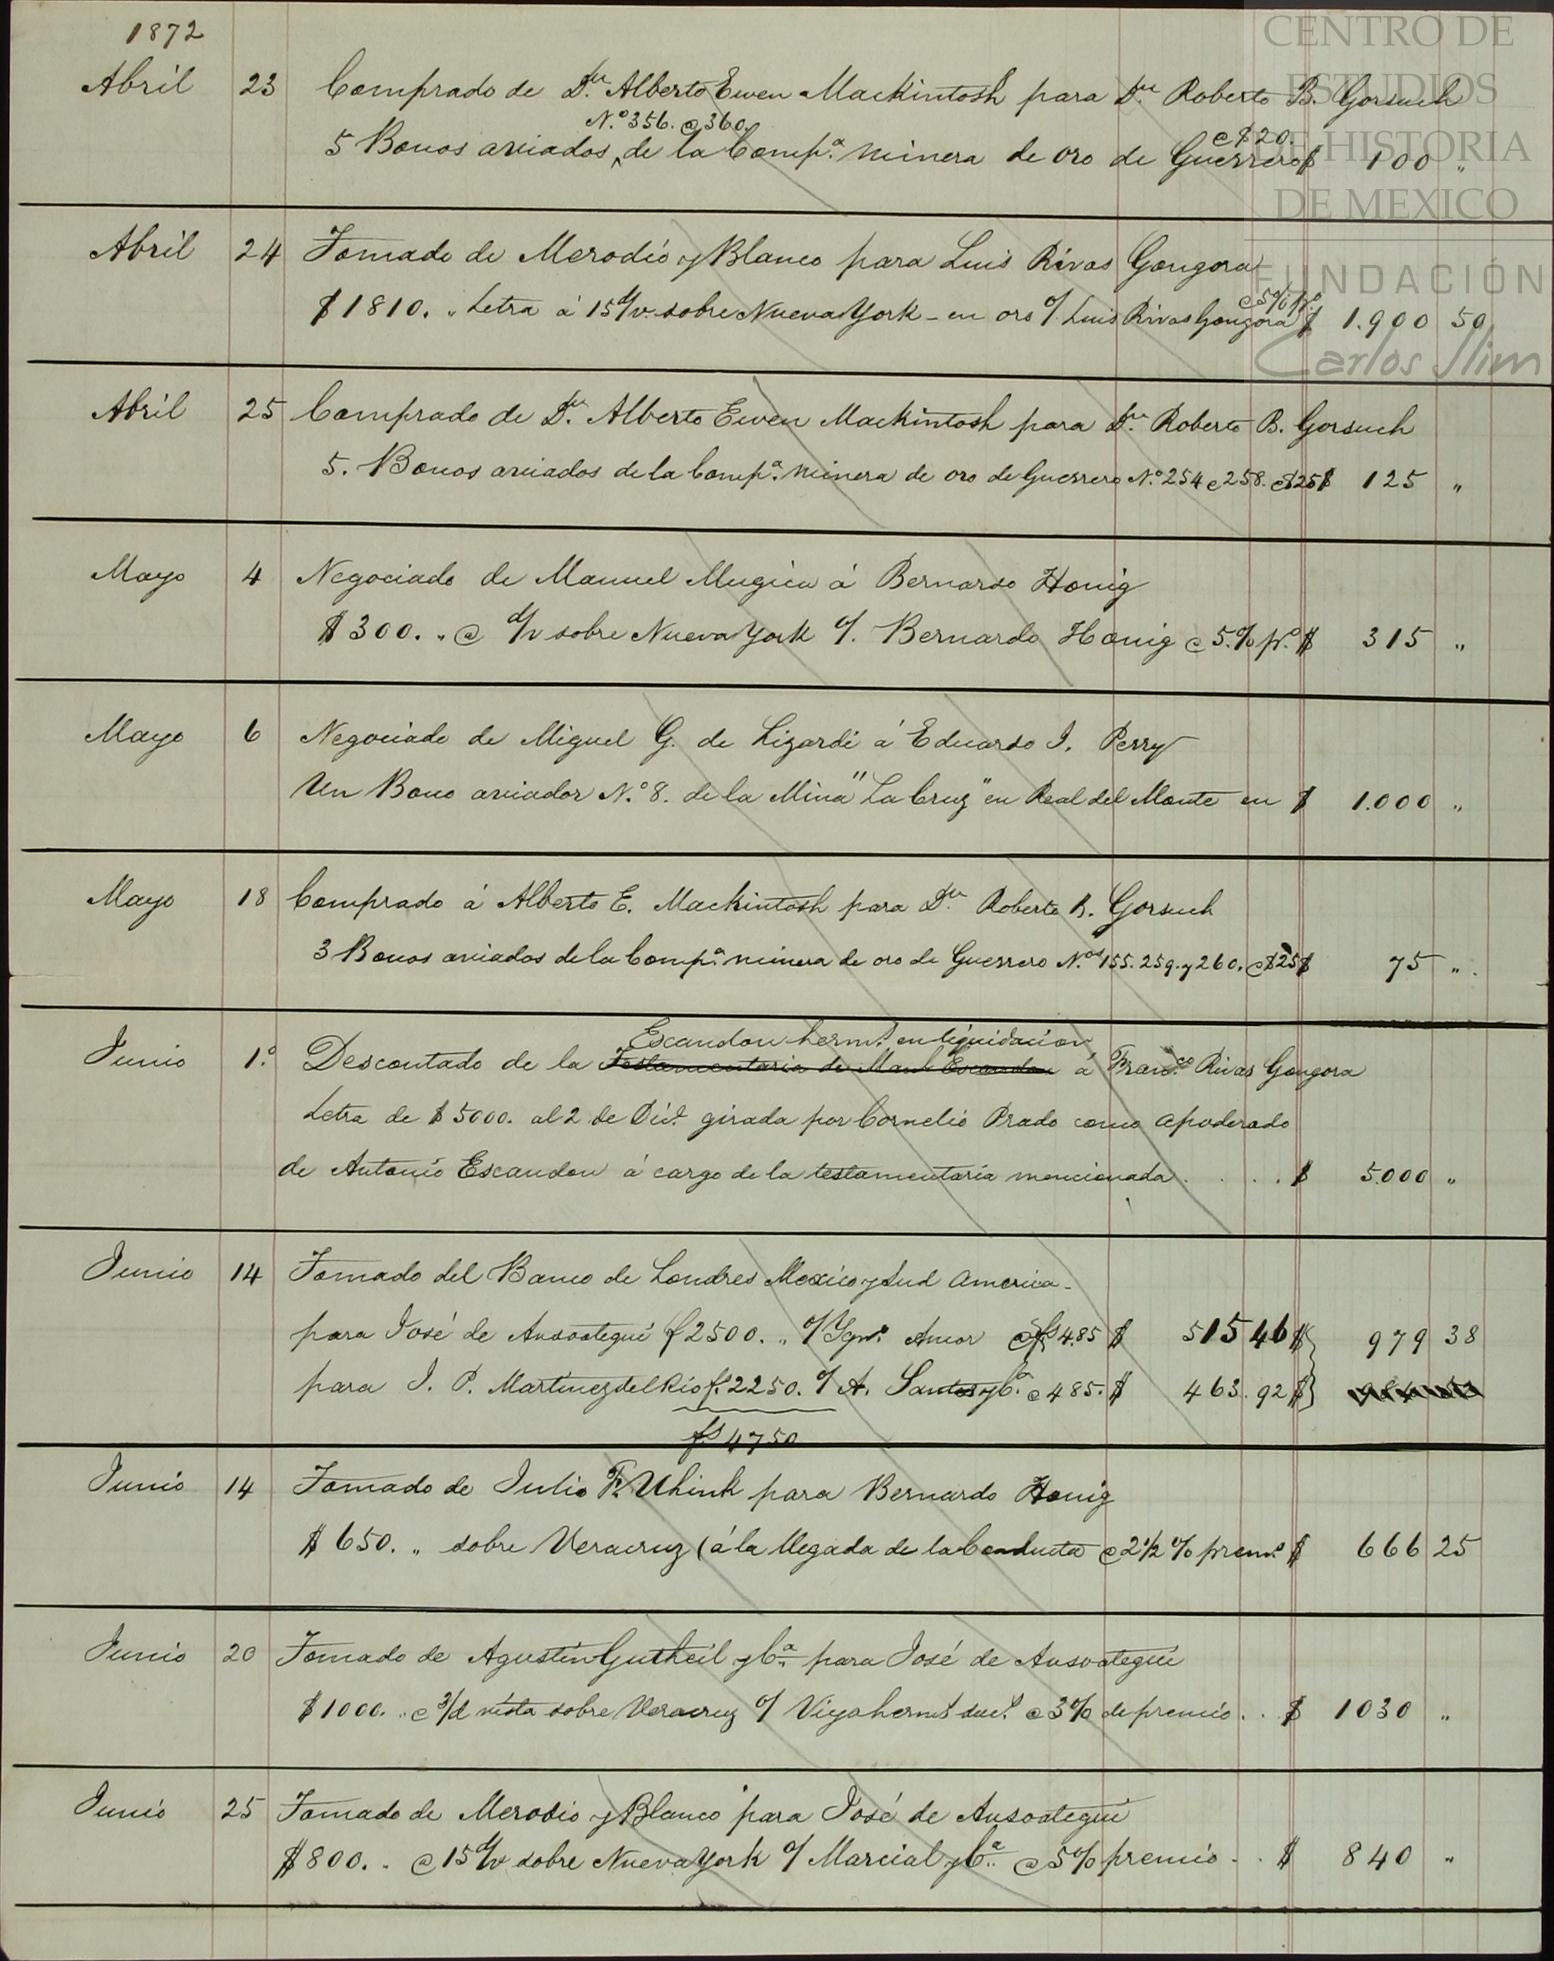 1872
CENTRO DE
ESTUDIOS
DE HISTORIA
DE MEXICO
FUNDACIÓN
Carlos Slim
Abril 23 Comprado de Dn. Alberto Ewen Mackintosh para Dn. Roberto B. Gorsuch
N.o 356. @ 360. @ $20.
5 Bonos aviados, de la Comp.a minera de oro de Guerrero $ 100 "
Abril 24 Tomado de Merodio y Blanco para Luis Rivas Gongora
@ 5% p.o
$1810. " Letra á 15 d/v. sobre Nueva York - en oro o/ Luis Rivas Gongora $ 1.900 50
Abril 25 Comprado de Dn. Alberto Ewen Mackintosh para Dn. Roberto B. Gorsuch
5. Bonos aviados de la Comp.a minera de oro de Guerrero N.o 254 @ 258. @ $25 $ 125 "
Mayo 4 Negociado de Manuel Mugica á Bernardo Honig
$300. " @ d/v sobre Nueva York o/. Bernardo Honig @ 5.% p.o $ 315 "
Mayo 6 Negociado de Miguel G. de Lizardi á Eduardo I. Perry
Un Bono aviador N.o 8. de la Mina "La Cruz" en Real del Monte en $ 1.000 "
Mayo 18 Comprado á Alberto E. Mackintosh para Dn. Roberto B. Gorsuch
3 Bonos aviados de la Comp.a minera de oro de Guerrero N.os 155. 259. y 260. @ $25 $ 75 "
Escandon herm.s en liquidacion
Junio 1.o Descontado de la Testamentaria de Manl. Escandon á Fran.co Rivas Gongora
Letra de $5000. al 2 de Dic.e girada por Cornelio Prado como apoderado
de Antonio Escandon á cargo de la testamentaria mencionada . . . . $ 5.000 "
Junio 14 Tomado del Banco de Londres Mexico y Sud America -
para José de Ansoategui f 2500. " o/ Ign.o Amor @ fs 4.85 $ 515 46 $ } 979 38
para I. P. Martinez del Rio f. 2250. o/ A. Santos y C.a @ 485. $ 463. 92 $ }
fs 4750
Junio 14 Tomado de Julio F. Uhink para Bernardo Honig
$ 650. " sobre Veracruz (á la llegada de la Conducta @ 2 1/2 % prem.o $ 666 25
Junio 20 Tomado de Agustin Gutheil y C.a para José de Ansoategui
$1000. " @ 3/d vista sobre Veracruz o/ Viya herm.s suc.s @ 3% de premio . . $ 1030 "
Junio 25 Tomado de Merodio y Blanco para José de Ansoategui
$800. " @ 15 d/v sobre Nueva York o/ Marcial y C.a @ 5% premio . . $ 840 "